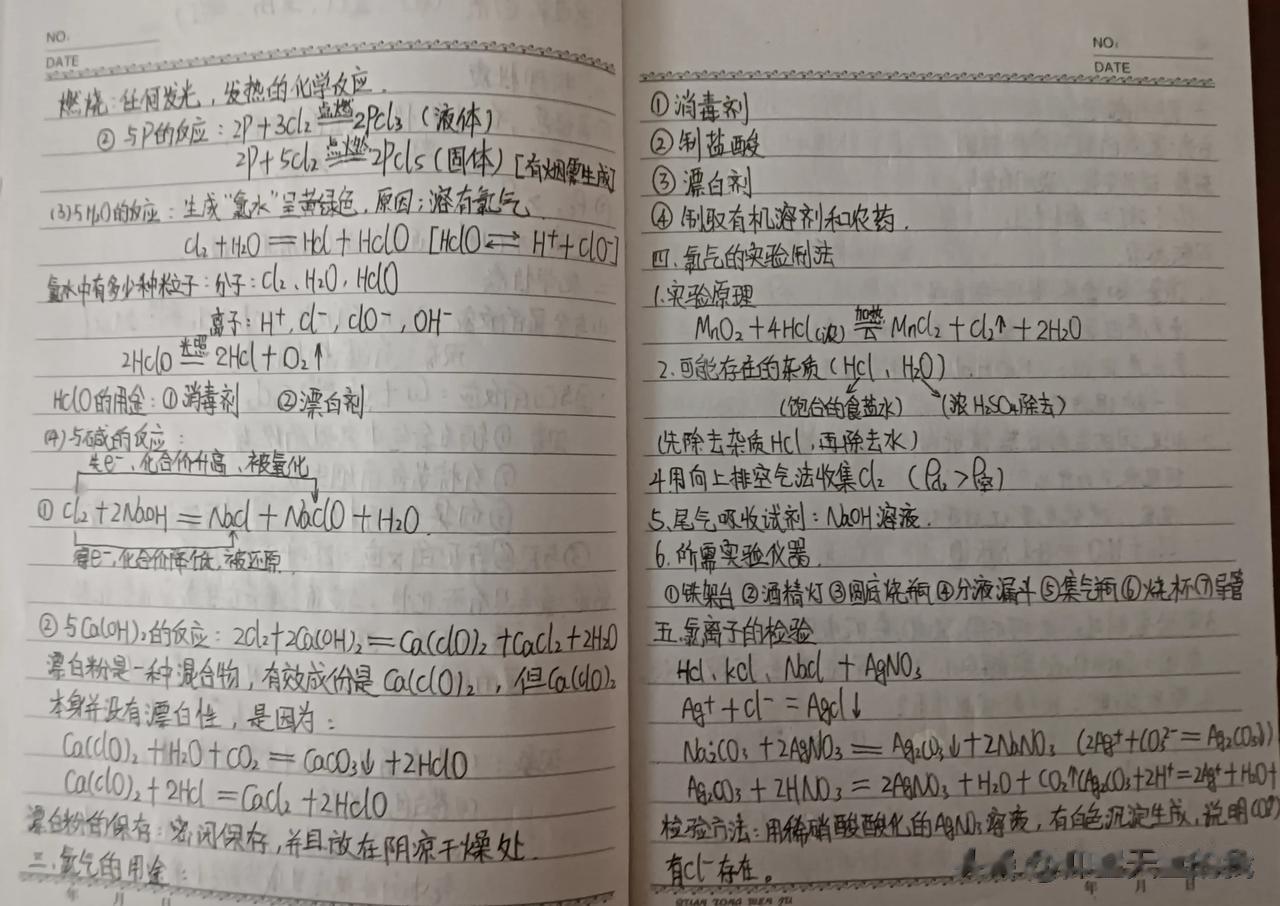 NO:
DATE
燃烧:任何发光，发热的化学反应.
②与P的反应: 2P+3Cl₂ 点燃 2PCl₃（液体）
2P+5Cl₂ 点燃 2PCl₅（固体）[有烟雾生成]
(3)与H₂O的反应: 生成“氯水”呈黄绿色，原因;溶有氯气.
Cl₂+H₂O=HCl+HClO [HClO⇌H⁺+ClO⁻]
氯水中有多少种粒子:分子:Cl₂、H₂O、HClO
离子:H⁺, Cl⁻, ClO⁻, OH⁻
2HClO 光照 2HCl+O₂↑
HClO的用途:①消毒剂 ②漂白剂
(4)与碱的反应:
失e⁻、化合价升高、被氧化
①Cl₂+2NaOH=NaCl+NaClO+H₂O
得e⁻,化合价降低,被还原.
②与Ca(OH)₂的反应: 2Cl₂+2Ca(OH)₂=Ca(ClO)₂+CaCl₂+2H₂O
漂白粉是一种混合物，有效成份是Ca(ClO)₂，但Ca(ClO)₂
本身并没有漂白性，是因为:
Ca(ClO)₂+H₂O+CO₂=CaCO₃↓+2HClO
Ca(ClO)₂+2HCl=CaCl₂+2HClO
漂白粉的保存:密闭保存,并且放在阴凉干燥处.
三.氯气的用途:
年 月 日
NO:
DATE
①消毒剂
②制盐酸
③漂白剂
④制取有机溶剂和农药.
四.氯气的实验制法
1.实验原理
MnO₂+4HCl(浓) 加热 MnCl₂+Cl₂↑+2H₂O
2.可能存在的杂质(HCl、H₂O).
(饱合的食盐水) (浓H₂SO₄除去)
(先除去杂质HCl,再除去水)
4.用向上排空气法收集Cl₂ (ρCl₂>ρ空)
5、尾气吸收试剂:NaOH溶液.
6.所需实验仪器.
①铁架台②酒精灯③圆底烧瓶④分液漏斗⑤集气瓶⑥烧杯⑦导管
五.氯离子的检验
HCl、KCl、NaCl+AgNO₃
Ag⁺+Cl⁻=AgCl↓
Na₂CO₃+2AgNO₃=Ag₂CO₃↓+2NaNO₃ (2Ag⁺+CO₃²⁻=Ag₂CO₃↓)
Ag₂CO₃+2HNO₃=2AgNO₃+H₂O+CO₂↑(Ag₂CO₃+2H⁺=2Ag⁺+H₂O+
CO₂↑)
检验方法:用稀硝酸酸化的AgNO₃溶液,有白色沉淀生成,说明
有Cl⁻存在。
年 月 日
QIAN TONG WEN JU